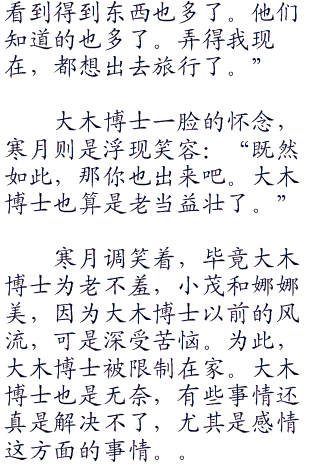 看到得到东西也多了。他们
知道的也多了。弄得我现
在，都想出去旅行了。”
大木博士一脸的怀念，
寒月则是浮现笑容：“既然
如此，那你也出来吧。大木
博士也算是老当益壮了。”
寒月调笑着，毕竟大木
博士为老不羞，小茂和娜娜
美，因为大木博士以前的风
流，可是深受苦恼。为此，
大木博士被限制在家。大木
博士也是无奈，有些事情还
真是解决不了，尤其是感情
这方面的事情。。